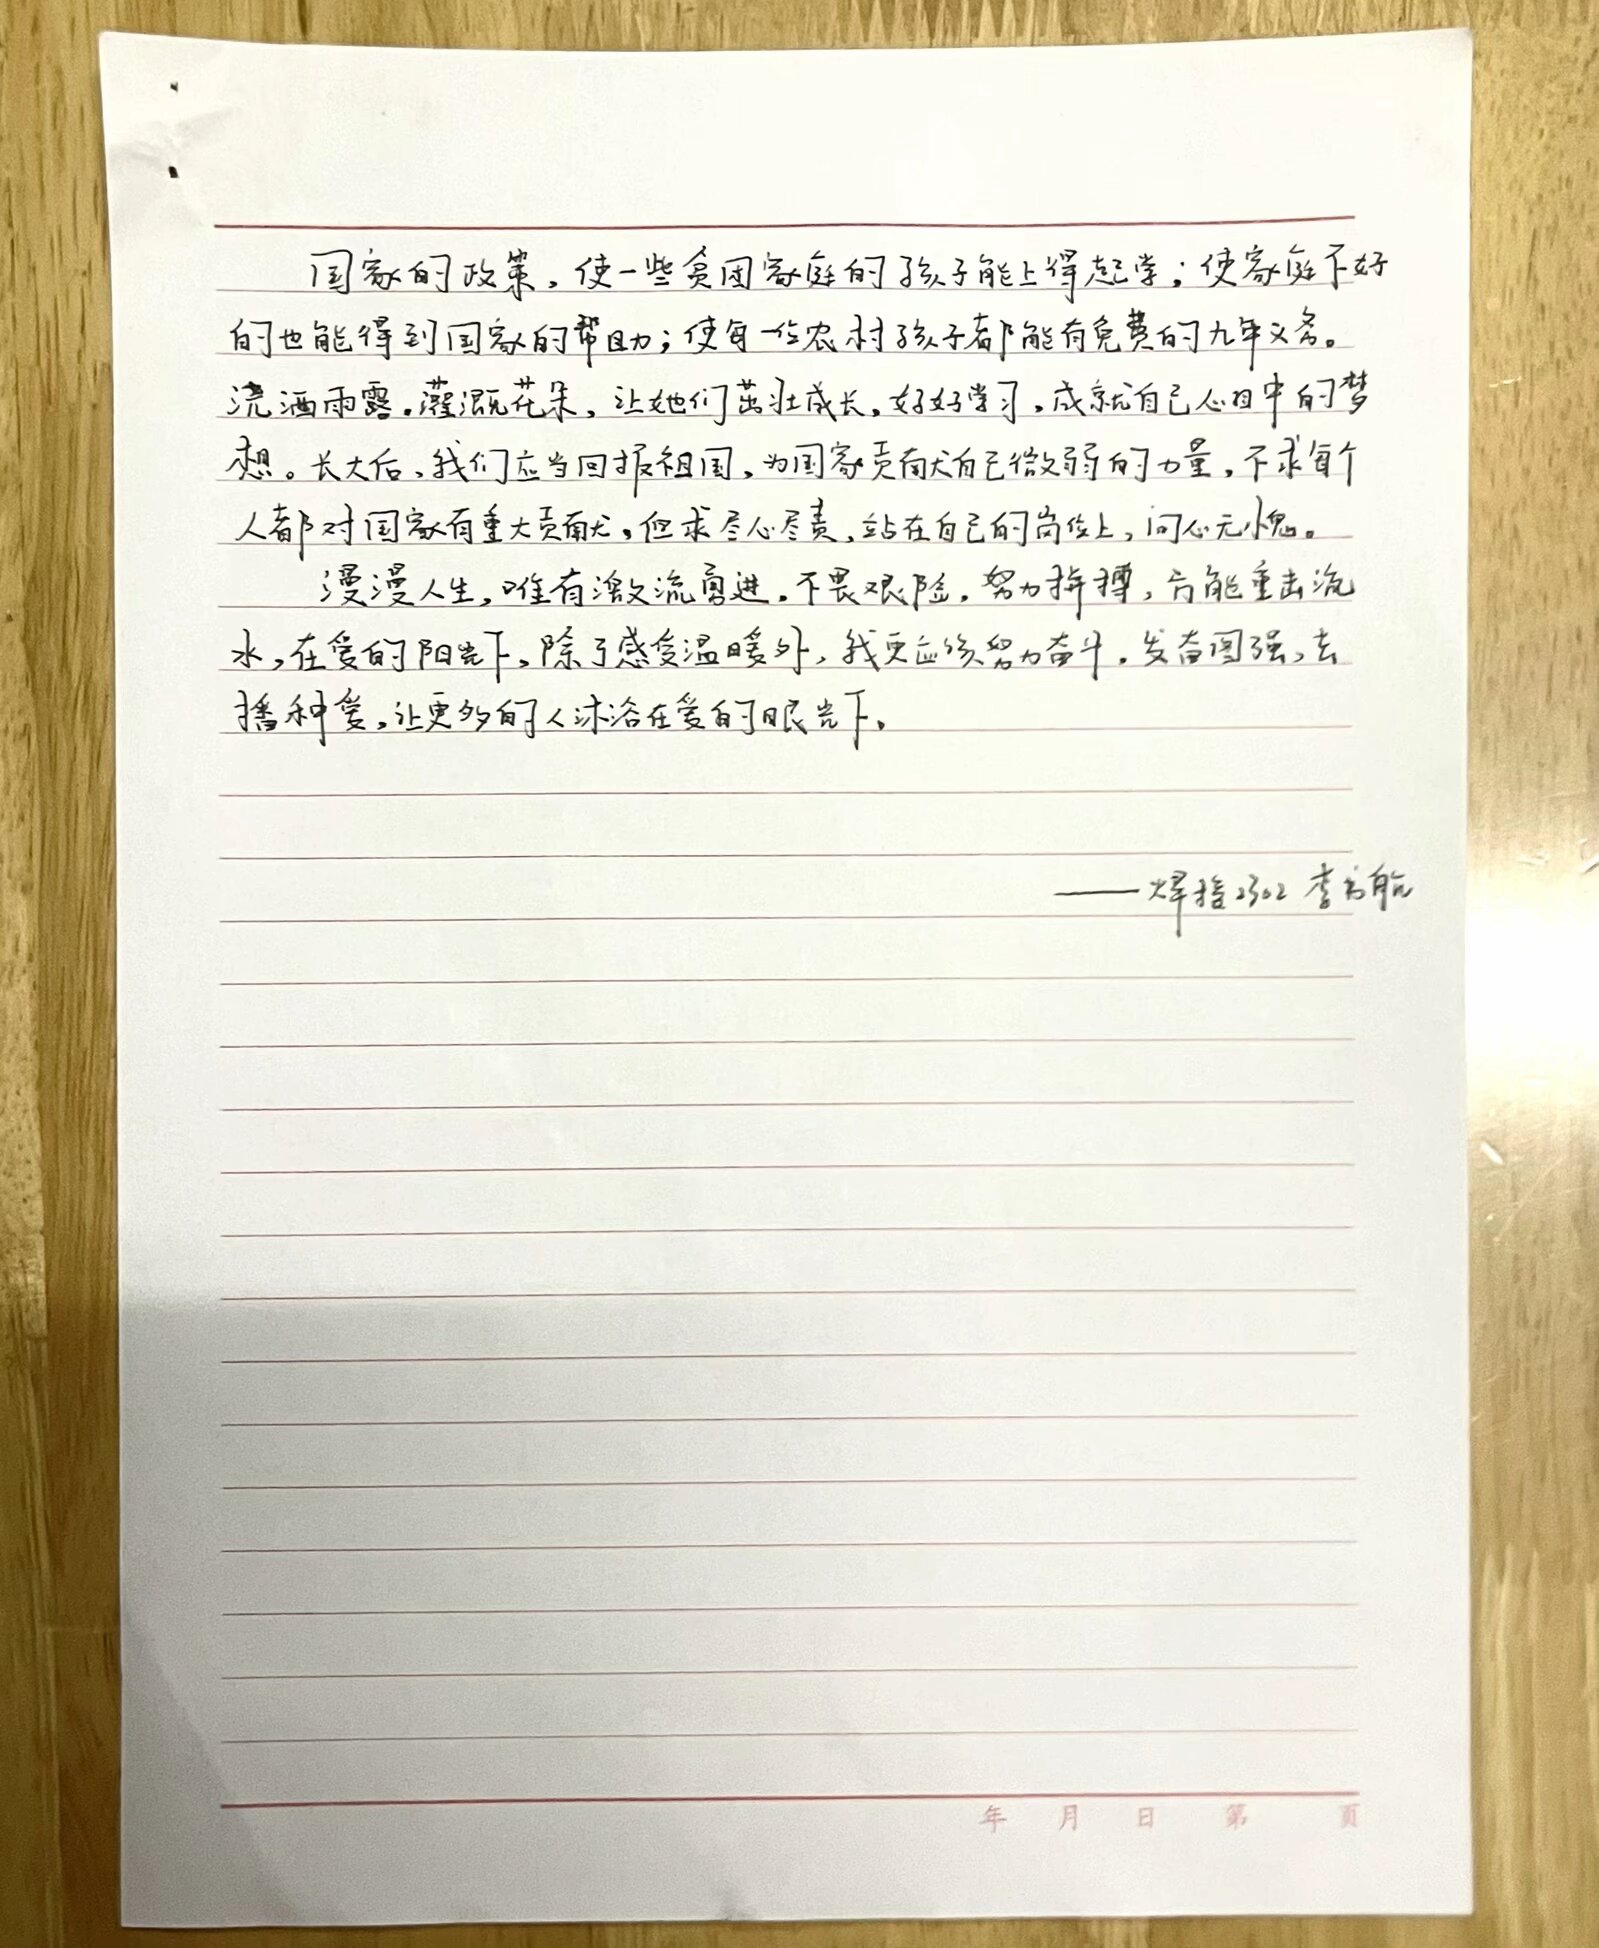 国家的政策，使一些贫困家庭的孩子能上得起学；使家庭不好
的也能得到国家的帮助；使每一位农村孩子都能有免费的九年义务。
浇洒雨露，灌溉花朵，让她们茁壮成长，好好学习，成就自己心目中的梦
想。长大后，我们应当回报祖国，为国家贡献自己微弱的力量，不求每个
人都对国家有重大贡献，但求尽心尽责，站在自己的岗位上，问心无愧。
漫漫人生，唯有激流勇进，不畏艰险，努力拼搏，方能重击流
水，在爱的阳光下，除了感受温暖外，我更应该努力奋斗，发奋图强，去
播种爱，让更多的人沐浴在爱的眼光下。
——焊接2302 李书航
年 月 日 第 页